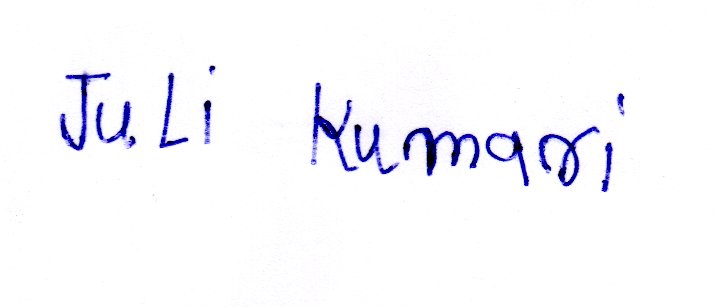 JuLi Kumari